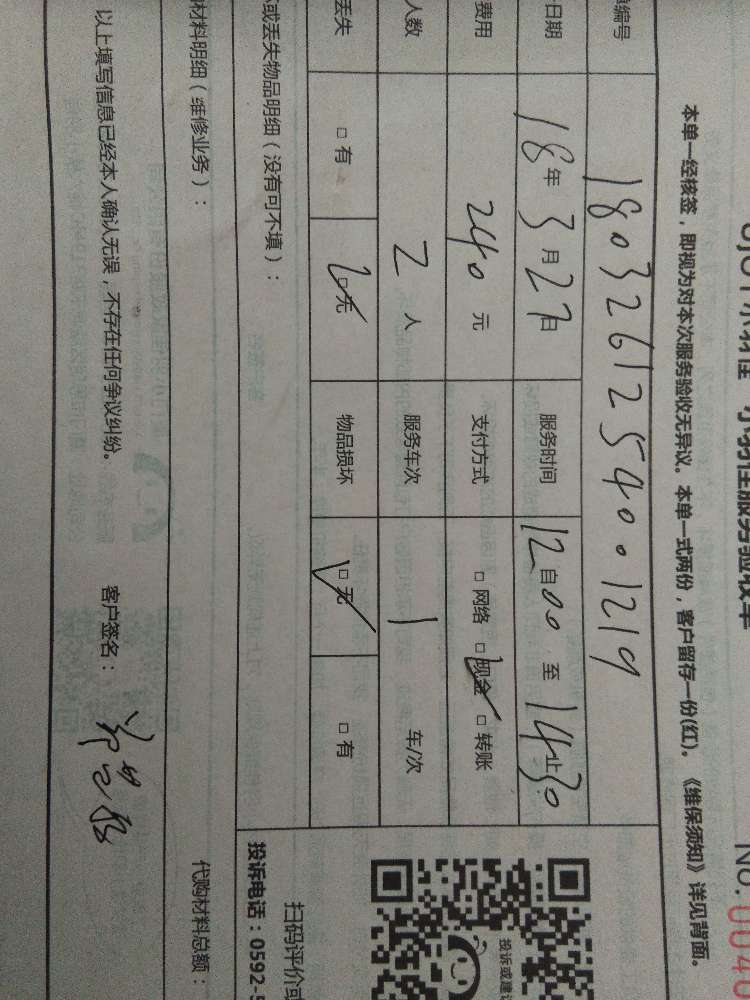 No.0040
本单一经核签，即视为对本次服务验收无异议。本单一式两份，客户留存一份(红)。《维保须知》详见背面。
编号 1803261254001219
日期 18年3月27日 服务时间 12自00至14止30
费用 240元 支付方式 □网络 □现金 □转账
人数 2人 服务车次 1 车/次
丢失 □有 □无 物品损坏 □无 □有
或丢失物品明细（没有可不填）：
材料明细（维修业务）：
代购材料总额：
以上填写信息已经本人确认无误，不存在任何争议纠纷。 客户签名：
投诉或建议
扫码评价或
投诉电话：0592-5